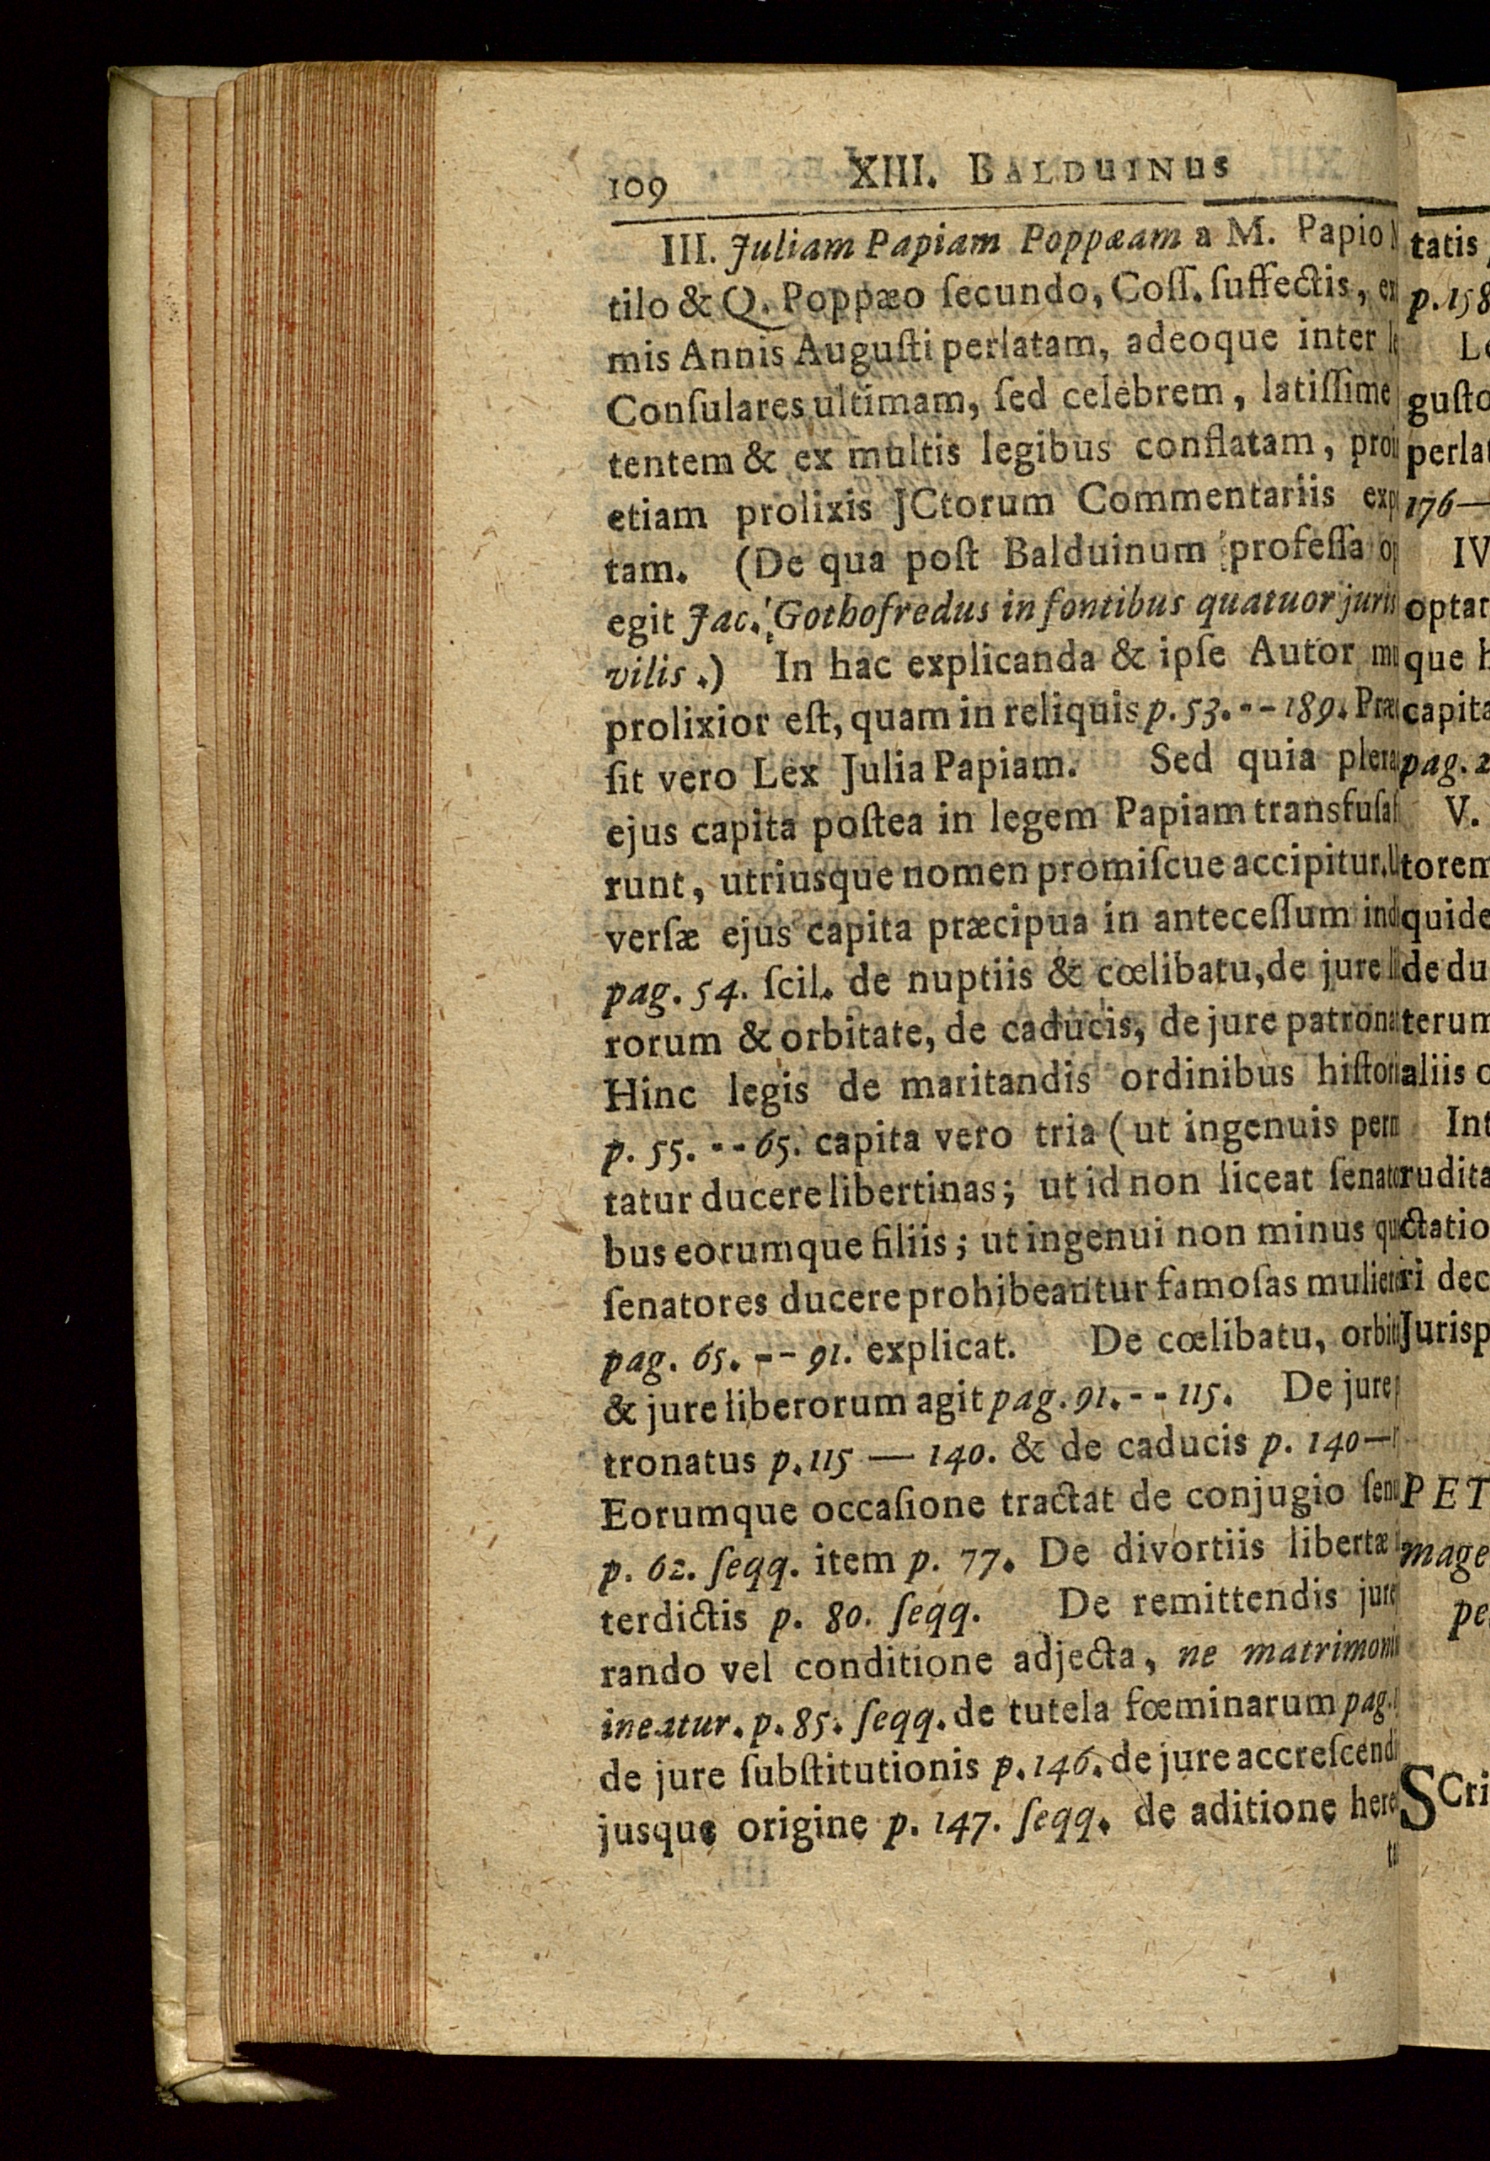 109 XIII. BALDUINUS
III. Juliam Papiam Poppæam a M. Papio
tilo & Q. Poppæo ſecundo, Coſſ. ſuffectis,
mis Annis Auguſti perlatam, adeoque inter
Conſulares ultimam, ſed celebrem, latiſſime
tentem & ex multis legibus conflatam,
etiam prolixis JCtorum Commentariis
tam. (De qua poſt Balduinum profeſſa
egit Jac. Gothofredus in fontibus quatuor juris
vilis.) In hac explicanda & ipſe Autor
prolixior eſt, quam in reliquis p. 53. -- 189.
ſit vero Lex Julia Papiam. Sed quia
ejus capita poſtea in legem Papiam transfuſa
runt, utriusque nomen promiſcue accipitur.
verſæ ejus capita præcipua in anteceſſum
pag. 54. ſcil. de nuptiis & cœlibatu, de jure
rorum & orbitate, de caducis, de jure
Hinc legis de maritandis ordinibus
p. 55. -- 65. capita vero tria (ut ingenuis
tatur ducere libertinas; ut id non liceat
bus eorumque filiis; ut ingenui non minus
ſenatores ducere prohibeantur famoſas
pag. 65. -- 91. explicat. De cœlibatu,
& jure liberorum agit pag. 91. -- 115. De jure
tronatus p. 115 — 140. & de caducis p. 140—
Eorumque occaſione tractat de conjugio
p. 62. ſeqq. item p. 77. De divortiis libertæ
terdictis p. 80. ſeqq. De remittendis
rando vel conditione adjecta, ne
ineatur. p. 85. ſeqq. de tutela fœminarum pag.
de jure ſubſtitutionis p. 146. de jure
jusque origine p. 147. ſeqq. de aditione
tatis
p. 158
guſto
perlat
176—
IV
optat
que
capita
pag. 2
V.
torem
quide
de du
terum
aliis
Int
rudita
ctatio
ri dec
Jurisp
PET
mage
pe
SCri